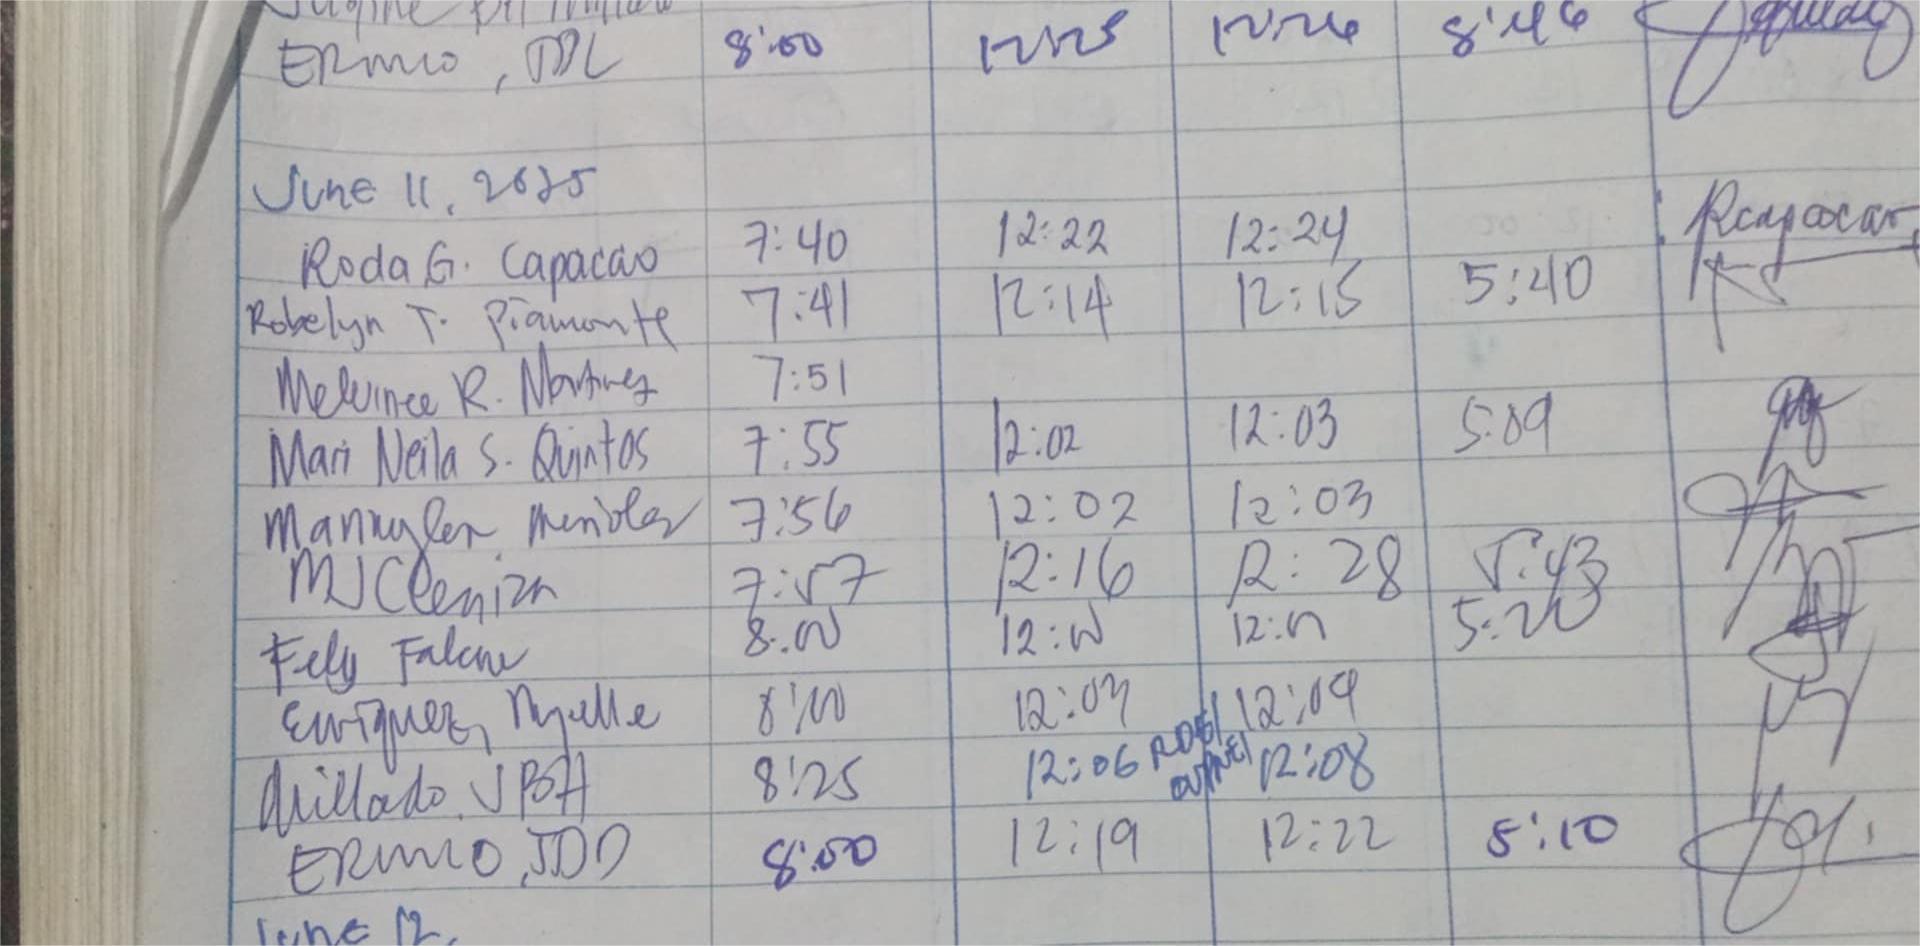 ERMIO, JDL 8:00 12:25 12:26 8:46
June 11, 2025
Roda G. Capacao 7:40 12:22 12:24 Rcapacao
Robelyn T. Piamonte 7:41 12:14 12:15 5:40
Melvinee R. Martinez 7:51
Mari Neila S. Quintos 7:55 12:02 12:03 5:09
7:56 12:02 12:03
MJ Cleniza 7:57 12:16 12:28 5:43
Fely Falcne 8:00 12:10 12:11 5:20
Enriquez, 8:00 12:03 12:04
8:25 12:06 12:08
ERMIO, JDD 8:00 12:19 12:22 5:10
June 12,